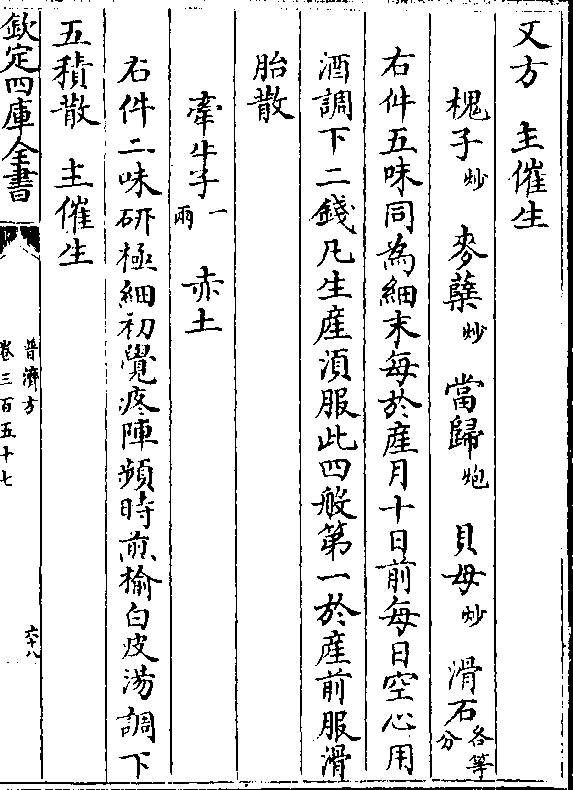 又方　主催生
槐子炒　麥蘖炒　當歸炮　貝母炒　滑石各等分
右件五味同為細末每於産月十日前每日空心用
酒調下二錢凡生産湏服此四般第一於産前服滑
胎散
牽牛子一兩　赤土
右件二味研極細初覺疼陣頻時煎榆白皮湯調下
五積散　主催生
欽定四庫全書
普濟方
卷三百五十七
六十八